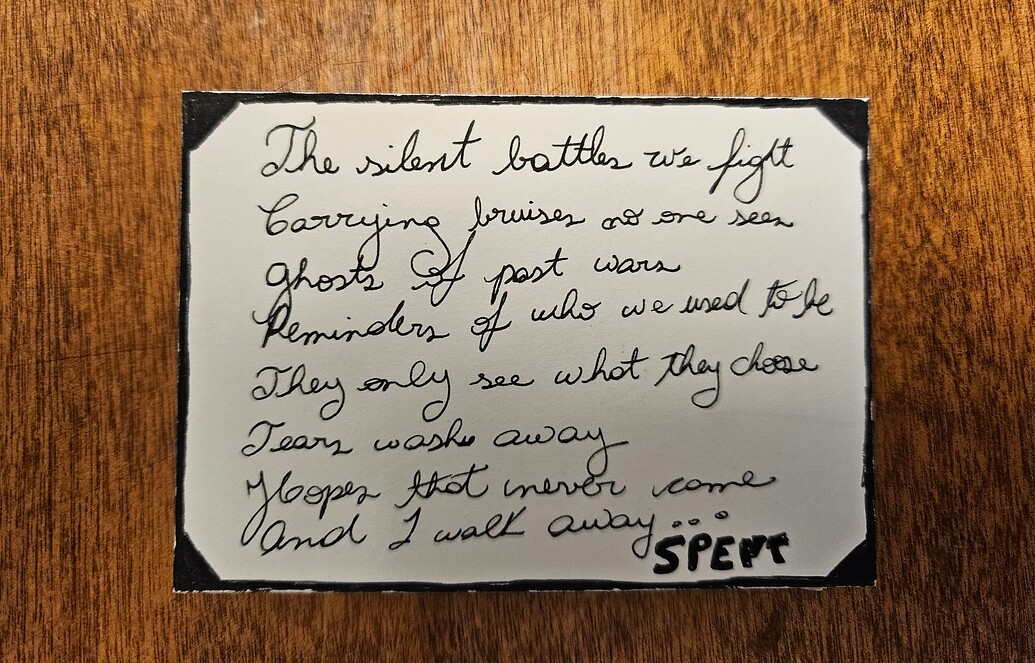 The silent battles we fight
Carrying bruises no one sees
Ghosts of past wars
Reminders of who we used to be
They only see what they choose
Tears wash away
Hopes that never come
And I walk away...
SPENT